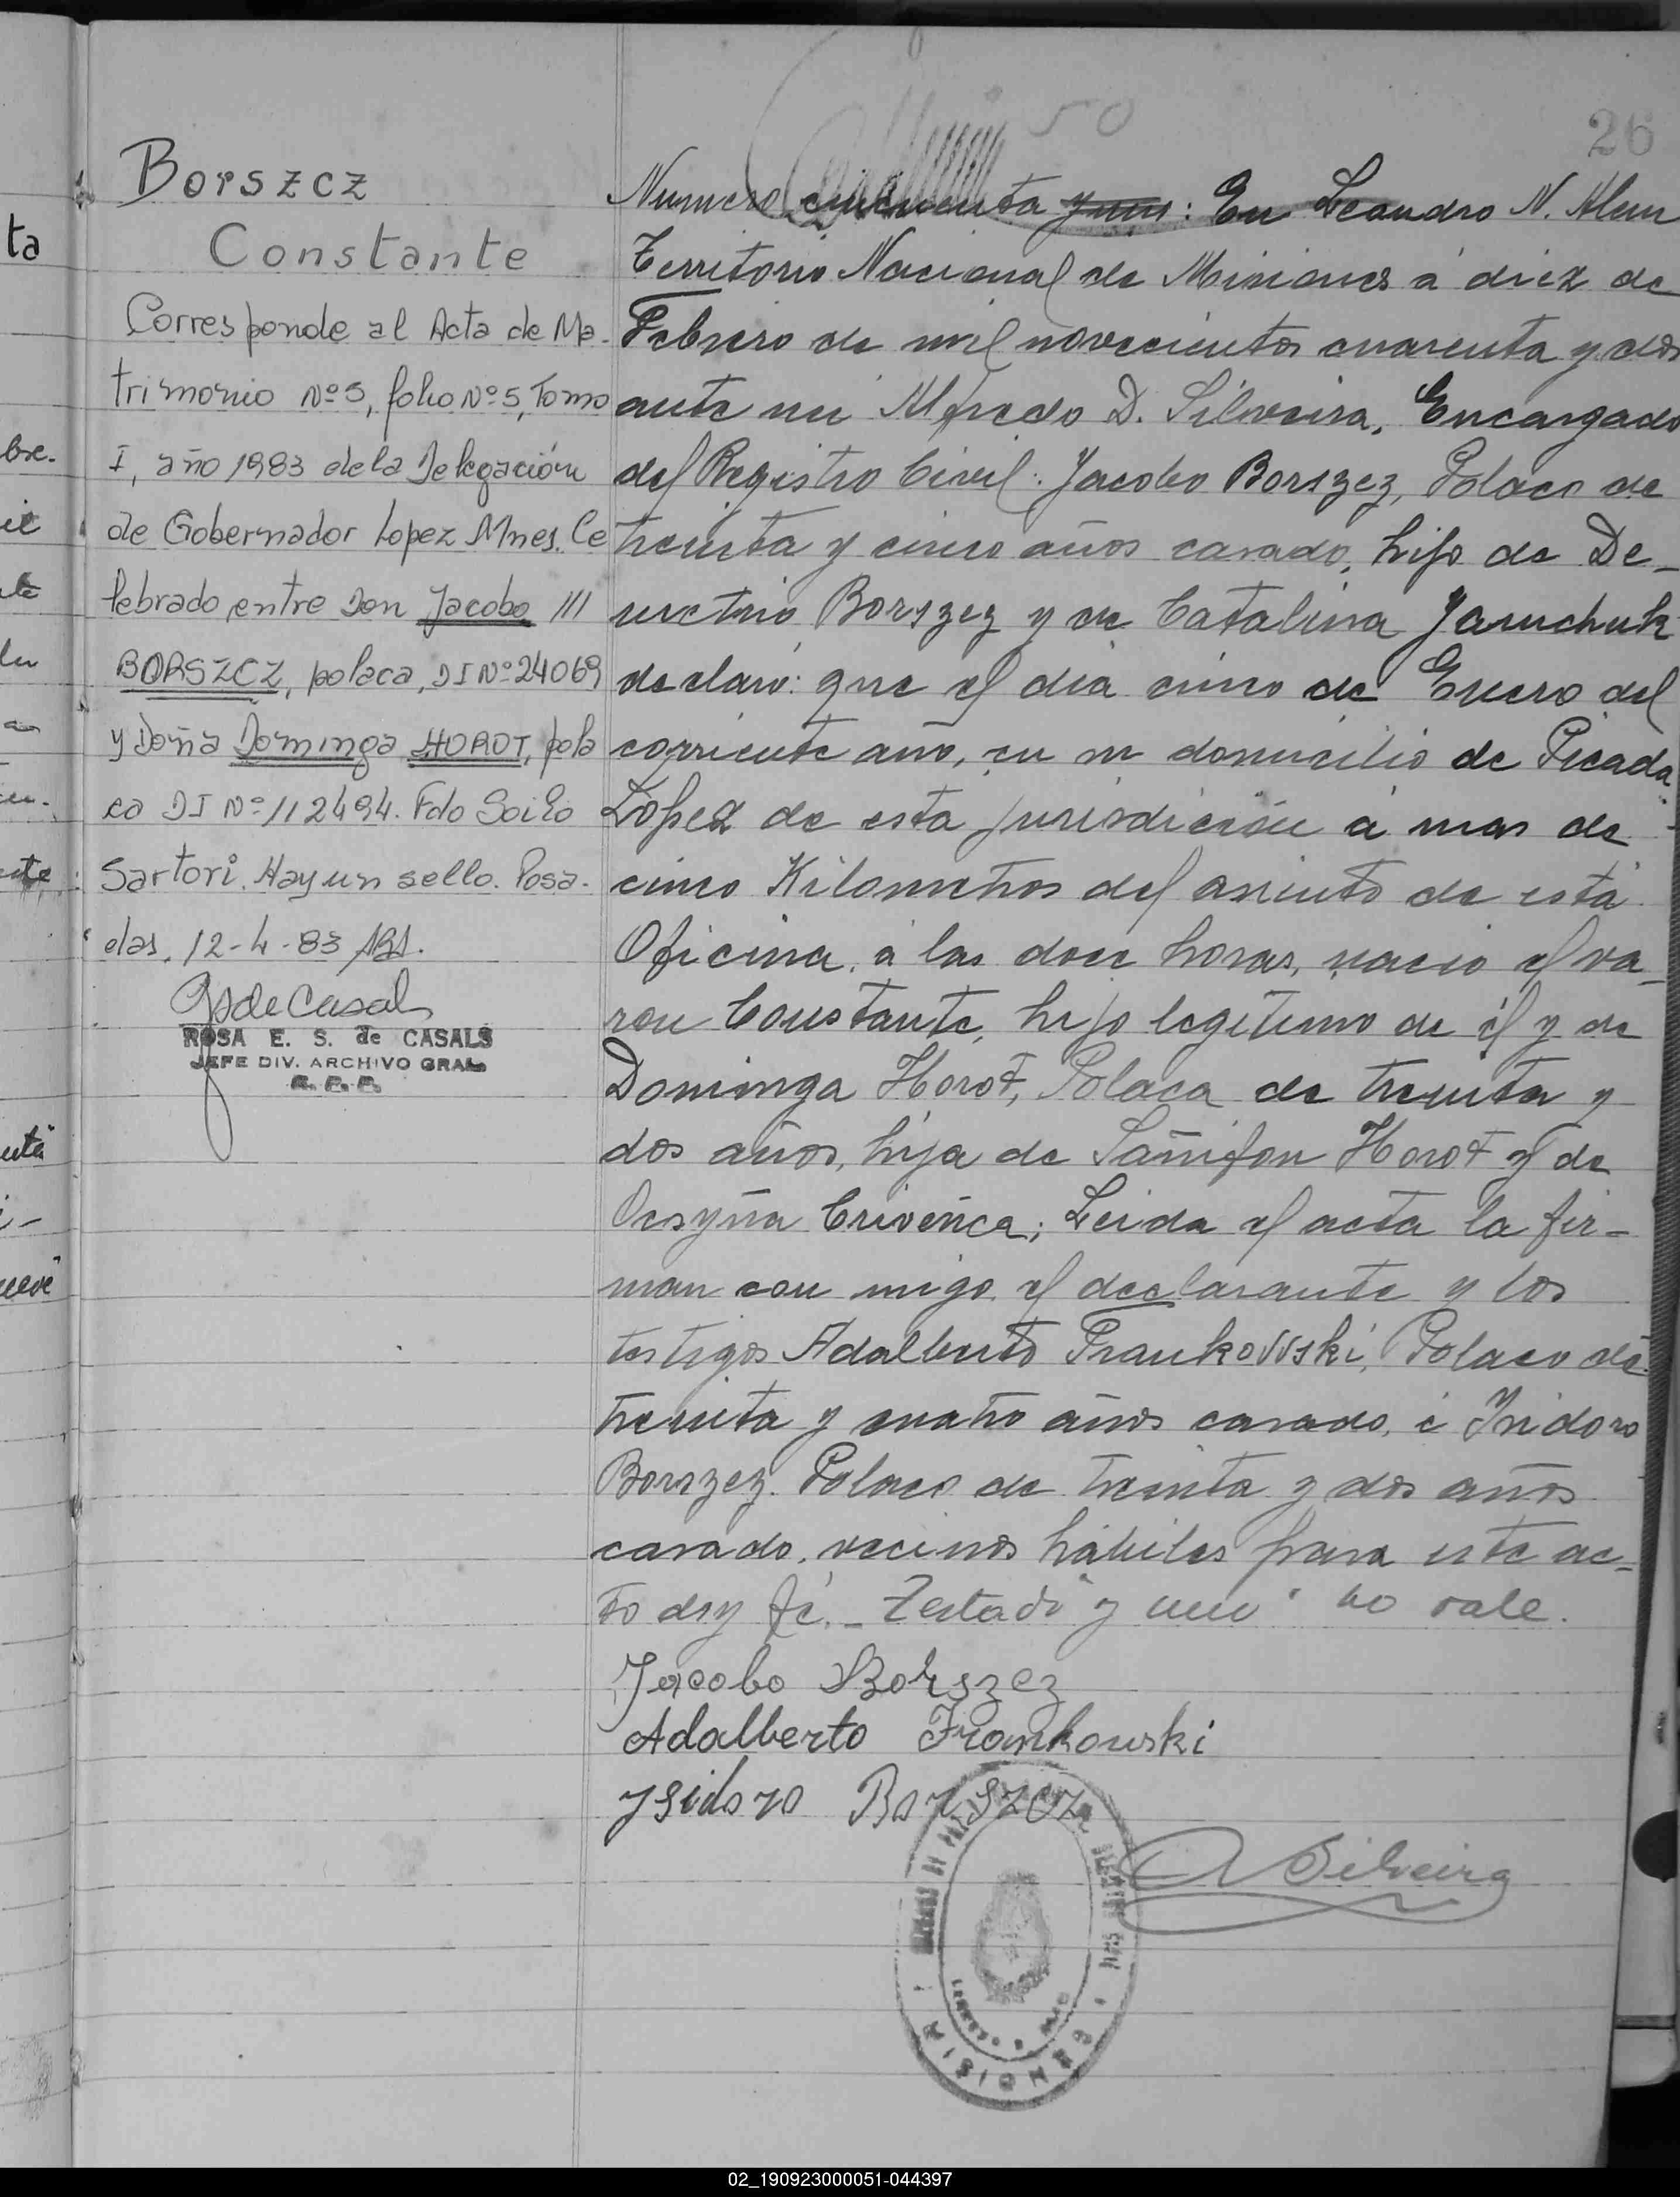 50
26
Borszcz
Constante
Corresponde al Acta de Ma-
trimonio Nº 5, folio Nº 5, Tomo
I, año 1983 de la Delegación
de Gobernador Lopez Mnes. Ce
lebrado entre Don Jacobo ///
BORSZCZ, polaca, DI Nº 24069
y Doña Dominga HOROT, pola
ca DI Nº 112494. Fdo Soilo
Sartori. Hay un sello. Posa-
das, 12-4-83
GsdeCasals
ROSA E. S. de CASALS
JEFE DIV. ARCHIVO GRAL
R. P. P.
Numero cincuenta y uno: En Leandro N. Alem
Territorio Nacional de Misiones á diez de
Febrero de mil novecientos cuarenta y dos
ante mi Alfredo D. Silveira, Encargado
del Registro Civil: Jacobo Borszez, Polaco de
treinta y cinco años casado, hijo de De-
metrio Borszez y de Catalina Jamchuk
declaró: que el dia cinco de Enero del
corriente año, en su domicilio de Picada
Lopez de esta jurisdicción á mas de
cinco Kilometros del asiento de esta
Oficina, á las doce horas, nacio el va-
ron Constante, hijo legitimo de él y de
Dominga Horot, Polaca de treinta y
dos años, hija de Sañifon Horot y de
Ocsyña Criveñca; Leida el acta la fir-
man con migo el declarante y los
testigos Adalberto Frankowski, Polaco de
treinta y cuatro años casado, é Isidoro
Borszez. Polaco de treinta y dos años
casado, vecinos hábiles para este ac-
to doy fé. - Testado "y uno" no vale.
Jacobo Borszez
Adalberto Frankowski
ysidoro Borszcz
A Silveira
02_190923000051-044397